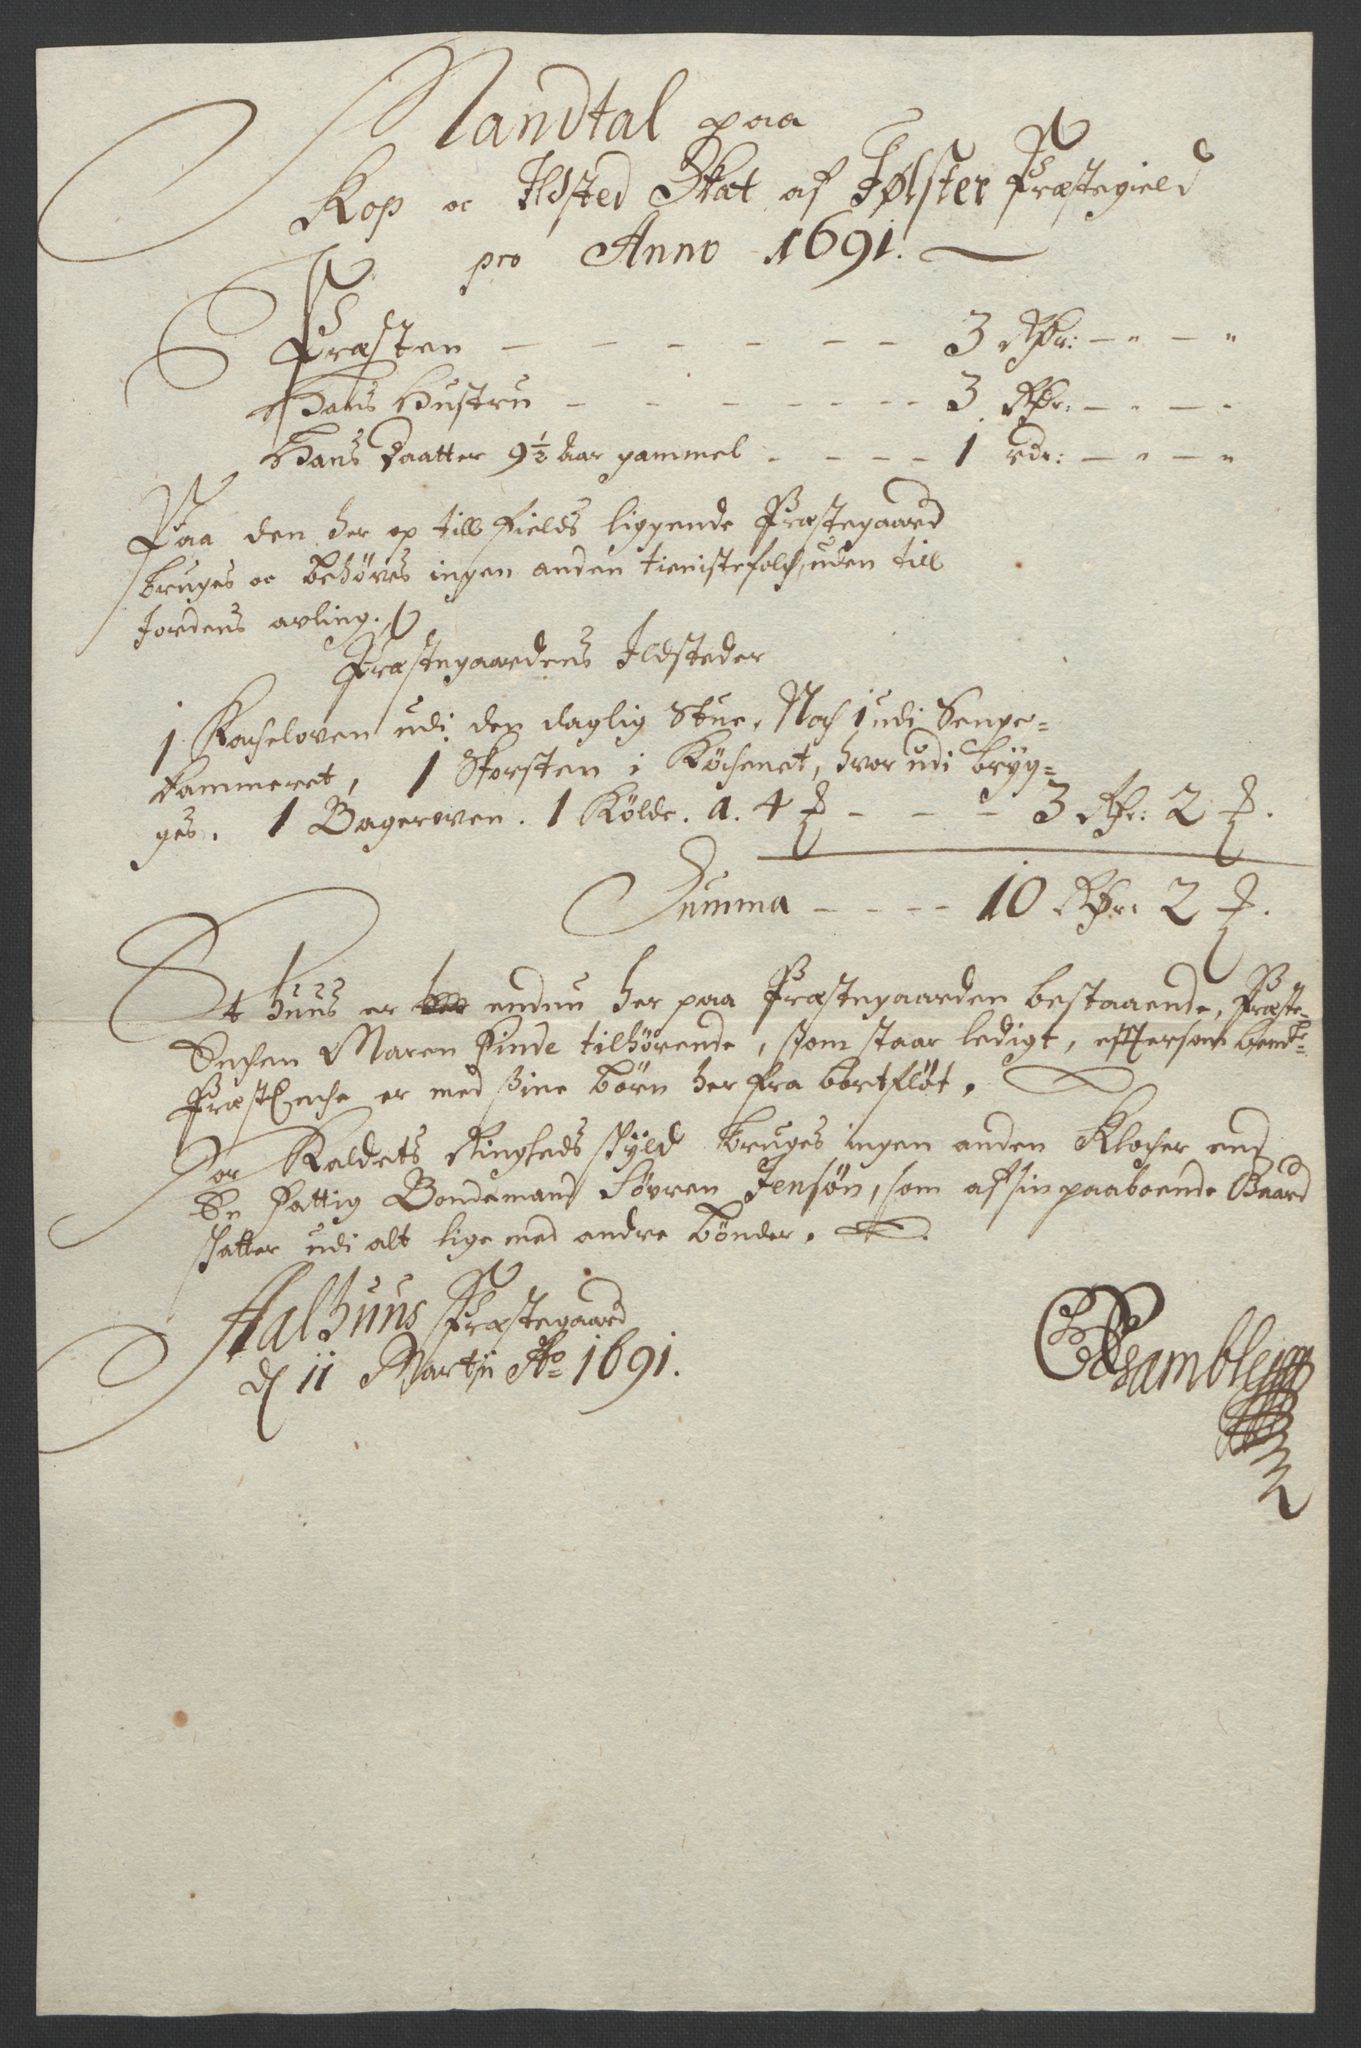 Mandtal paa
Kop oc Ildsted Skat af Jølster Præstegield
pro Anno 1691.
Præsten — — — — — — — 3 Rdr: — " — "
Hans Hustru — — — — — — — 3 Rdr: — " — "
Hans Daatter 9½ Aar gammel — — — — 1 rdr: — " — "
Paa den her op till Fields liggende Præstegaard
bruges oc behöves ingen anden tienistefolch, uden till
Jordens avling.
Præstegaardens Ildsteder
1 Kacheloven udi den daglig Stue. Noch 1 udi Senge-
kammeret, 1 Skorsten i Köchenet, hvor udi bryg-
ges. 1 Bageroven. 1 Kölde. a. 4 ß — — — 3 Rdr: 2 ß.
Summa — — — — 10 Rdr: 2 ß.
Et huus er endnu her paa Præstegaarden bestaaende, Præste-
Enchen Maren Finde tilhörende, som staar ledigt, eftersom bemte
PræstEnche er med sine börn her fra bortflöt.
For Kaldets Ringheds skyld bruges ingen anden Klocher end
En fattig Bondemand Sövren Jensön, som af sin paaboende Gaard
skatter udi alt lige med andre bönder.
Aalhuus Præstegaard
d 11 Martij Ao 1691.